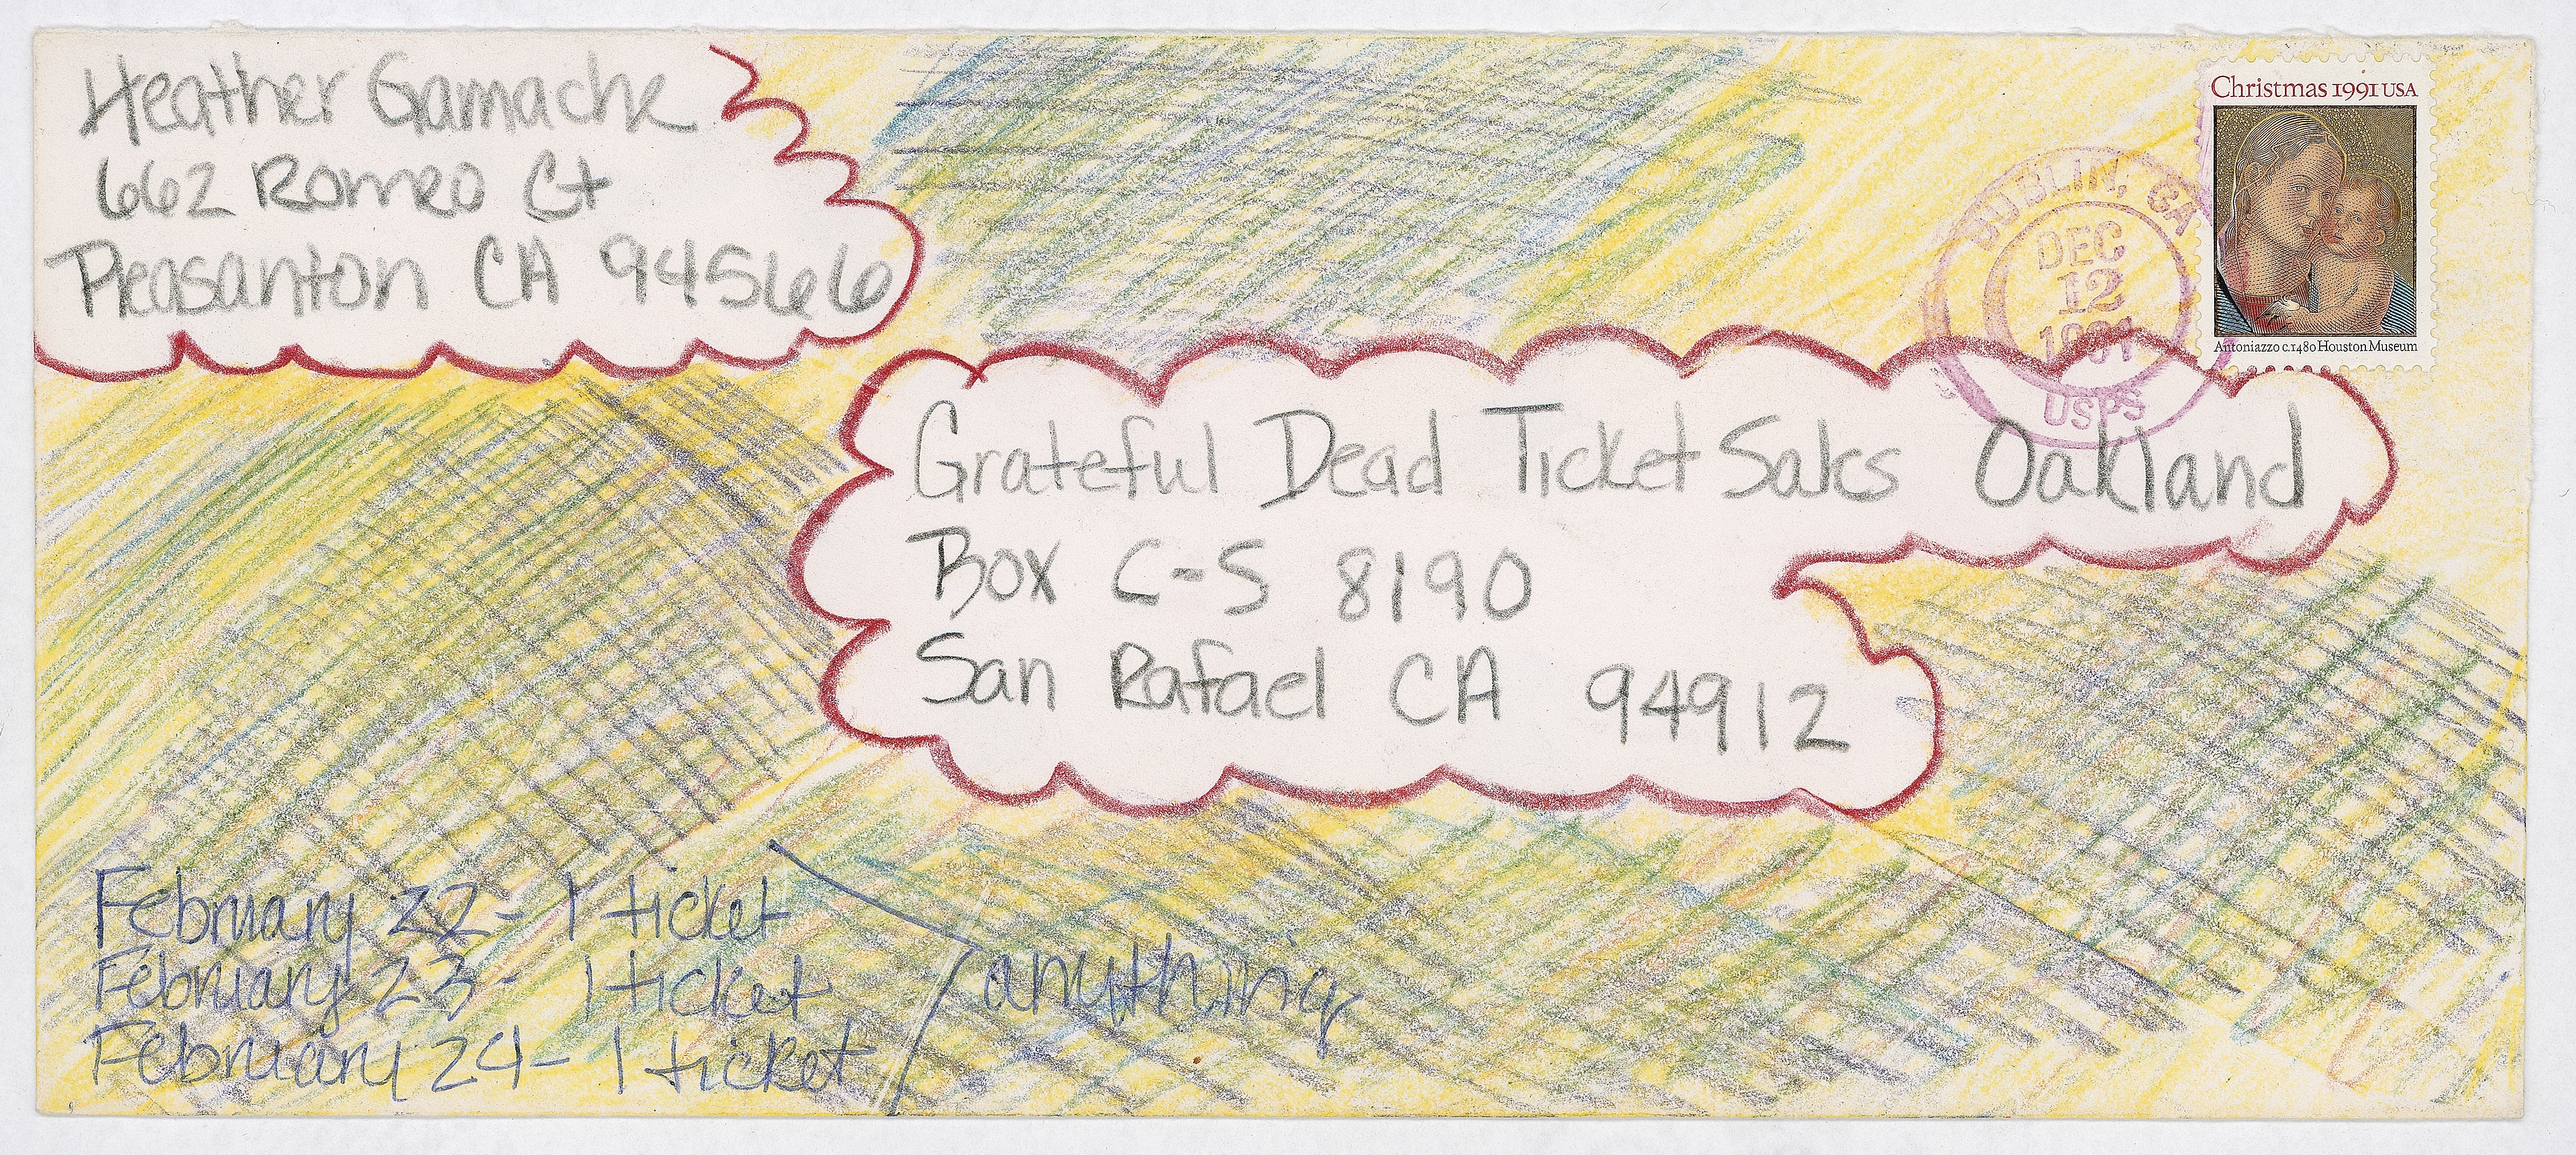 Heather Gamache
662 Romeo Ct
Pleasanton CA 94566
Christmas 1991 USA
Antoniazzo c.1480 Houston Museum
DUBLIN, CA
DEC
12
1991
USPS
Grateful Dead Ticket Sales Oakland
Box C-S 8190
San Rafael CA 94912
February 22 - 1 ticket
February 23 - 1 ticket
February 24 - 1 ticket
anything